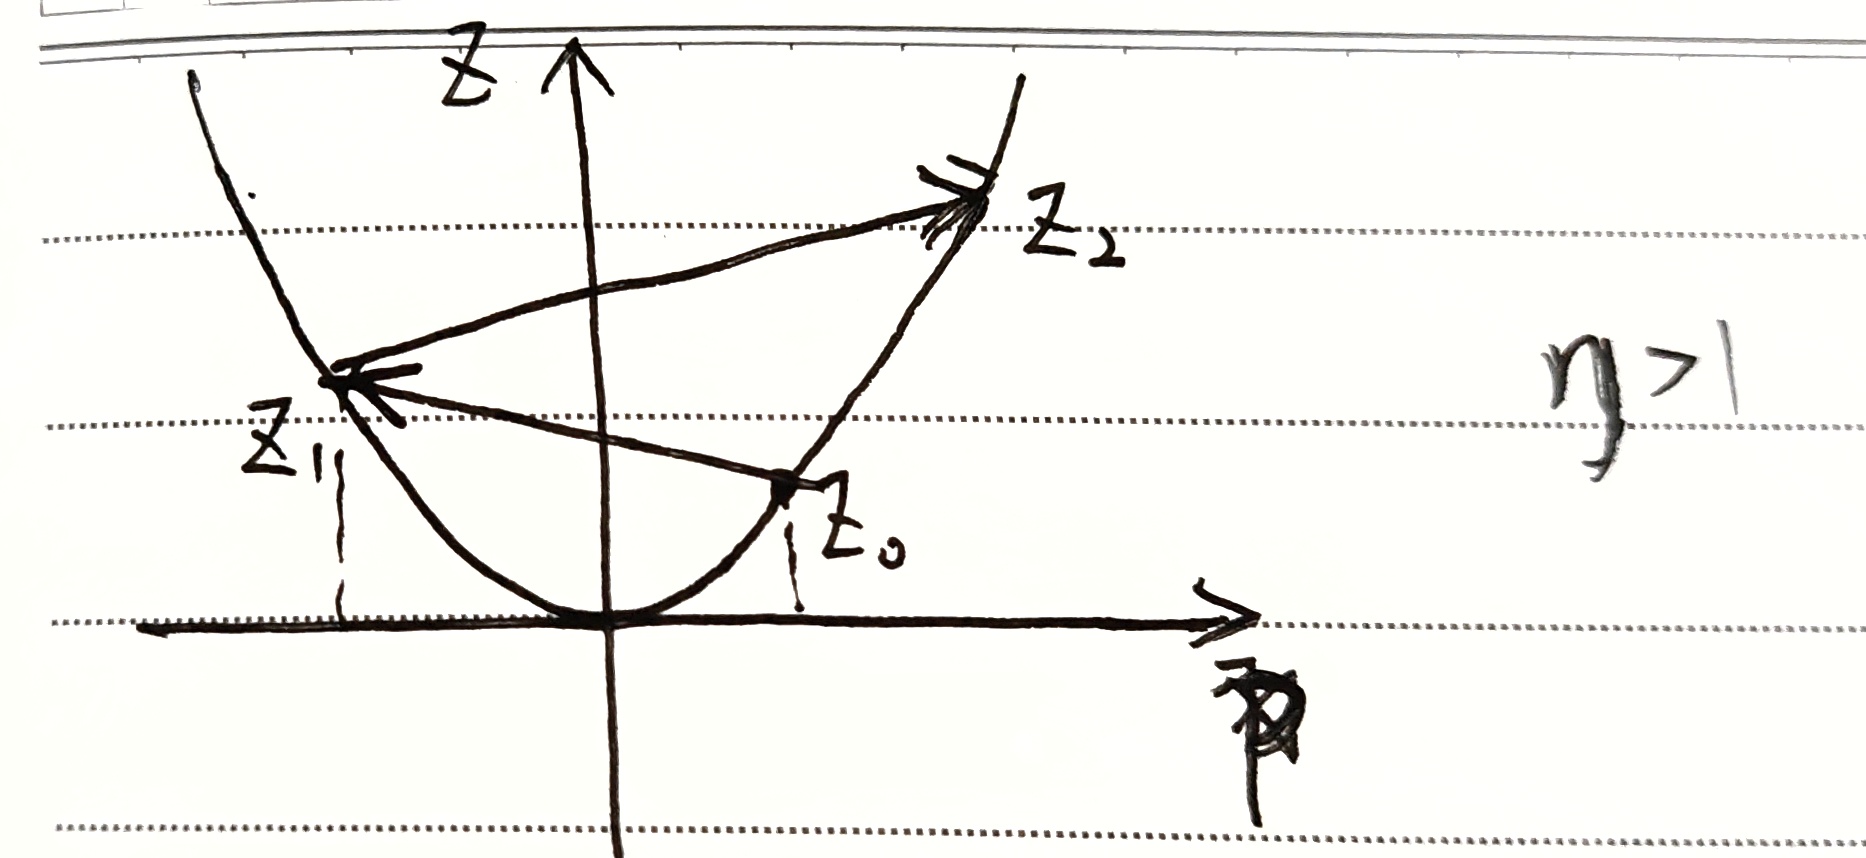 Z
Z₂
η>1
Z₁
Z₀
p